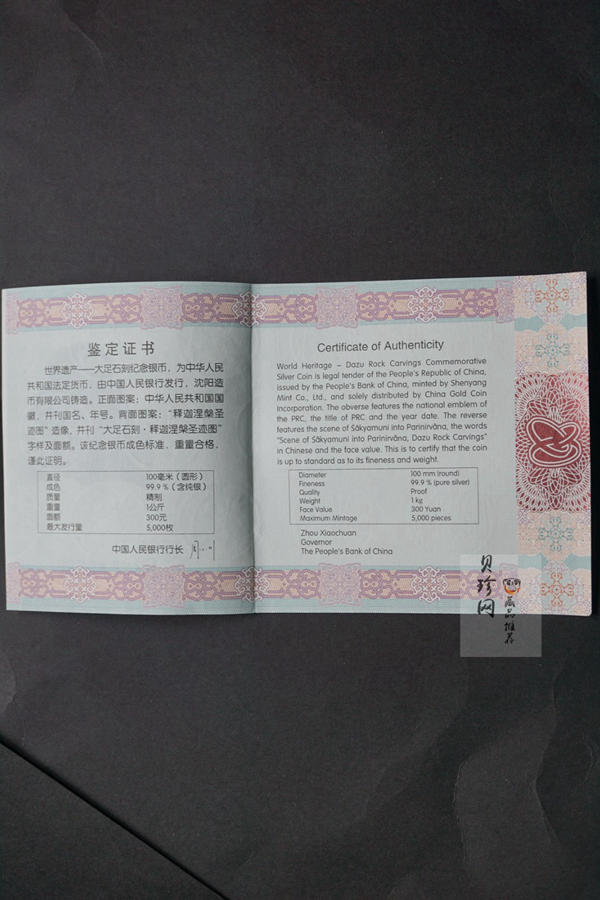 鉴定证书
世界遗产——大足石刻纪念银币，为中华人民
共和国法定货币，由中国人民银行发行，沈阳造
币有限公司铸造。正面图案：中华人民共和国国
徽，并刊国名、年号。背面图案：“释迦涅槃圣
迹图”造像，并刊“大足石刻·释迦涅槃圣迹图”
字样及面额。该纪念银币成色标准，重量合格，
谨此证明。
直径 100毫米（圆形）
成色 99.9 %（含纯银）
质量 精制
重量 1公斤
面额 300元
最大发行量 5,000枚
中国人民银行行长
Certificate of Authenticity
World Heritage – Dazu Rock Carvings Commemorative
Silver Coin is legal tender of the People's Republic of China,
issued by the People's Bank of China, minted by Shenyang
Mint Co., Ltd., and solely distributed by China Gold Coin
Incorporation. The obverse features the national emblem of
the PRC, the title of PRC and the year date. The reverse
features the scene of Sākyamuni into Parinirvāna, the words
"Scene of Sākyamuni into Parinirvāna, Dazu Rock Carvings"
in Chinese and the face value. This is to certify that the coin
is up to standard as to its fineness and weight.
Diameter 100 mm (round)
Fineness 99.9 % (pure silver)
Quality Proof
Weight 1 kg
Face Value 300 Yuan
Maximum Mintage 5,000 pieces
Zhou Xiaochuan
Governor
The People's Bank of China
贝珍网
商品推荐